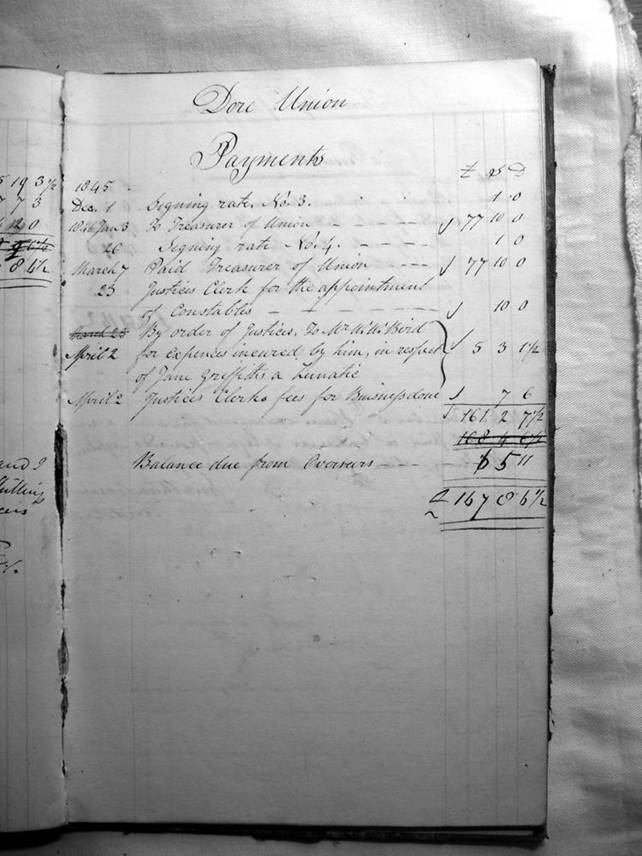 Dore Union
Payments
£ S D
5 19 3½
7 7 3
8 6½
1845
Dec. 1 Signing rate. No. 3. 1 0
1846 Jan 3 To Treasurer of Union 77 10 0
20 Signing rate No. 4. 1 0
March 7 Paid Treasurer of Union 77 10 0
25 Justices Clerk for the appointment
of Constables 10 0
March 25 By order of Justices, To Mr Will Bird
April 2 for expences incured by him, in respect 5 3 1½
of Jane Griffiths a Lunatic
April 2 Justices Clerks fees for Business done 7 6
161 2 7½
Balance due from Overseers 6 5 11
£ 167 8 6½
and I